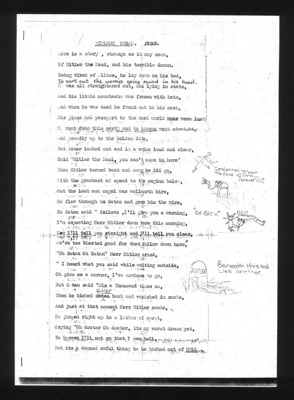 HITLERS DREAM.
Here is a story , strange as it may seem,
Of Hitler the Nazi, and his terrible dream.
Being tired of , he lay down on his bed,
To sort out the worries going round in his head.
was all straightened out, and lying in state,
And his little moustache was frozen with hate,
And when he was dead he found out to his cost,
His plans and passport to the next world were lost
went from this earth and to heaven went straight,
And proudly up to the Golden Gate,
But Peter looked out and in a voice loud and clear,
Said "Hitler the Nazi, you can't come in here"
Then Hitler turned back and away he did go,
With the greatest of speed to the region below.
But the look out angel was worth his hire,
He flew through to Satan and gave him the wire,
So Satan said " fellows ,I'll give you a warning,
I'm expecting Herr Hitler down here this morning,
I'll tell you straight and I'll tell you clear,
We're too blasted good for that fellow down here,
"Oh Satan Oh Satan" Herr Hitler cried,
" I heard what you said while waiting outside,
Oh give me a corner, I've nowhere to go,
But Satan said "No a Thousand times no,
Then he kicked back and vanished in smoke,
And just at that moment Herr Hitler awoke,
He jumped right up in a lather of sweat,
Crying "Oh doctor Oh doctor, its my worst dream yet,
To heaven I'll not go that I can tell,
But its a damned awful thing to be kicked out of HELL.
Beneath this sod
Lies another